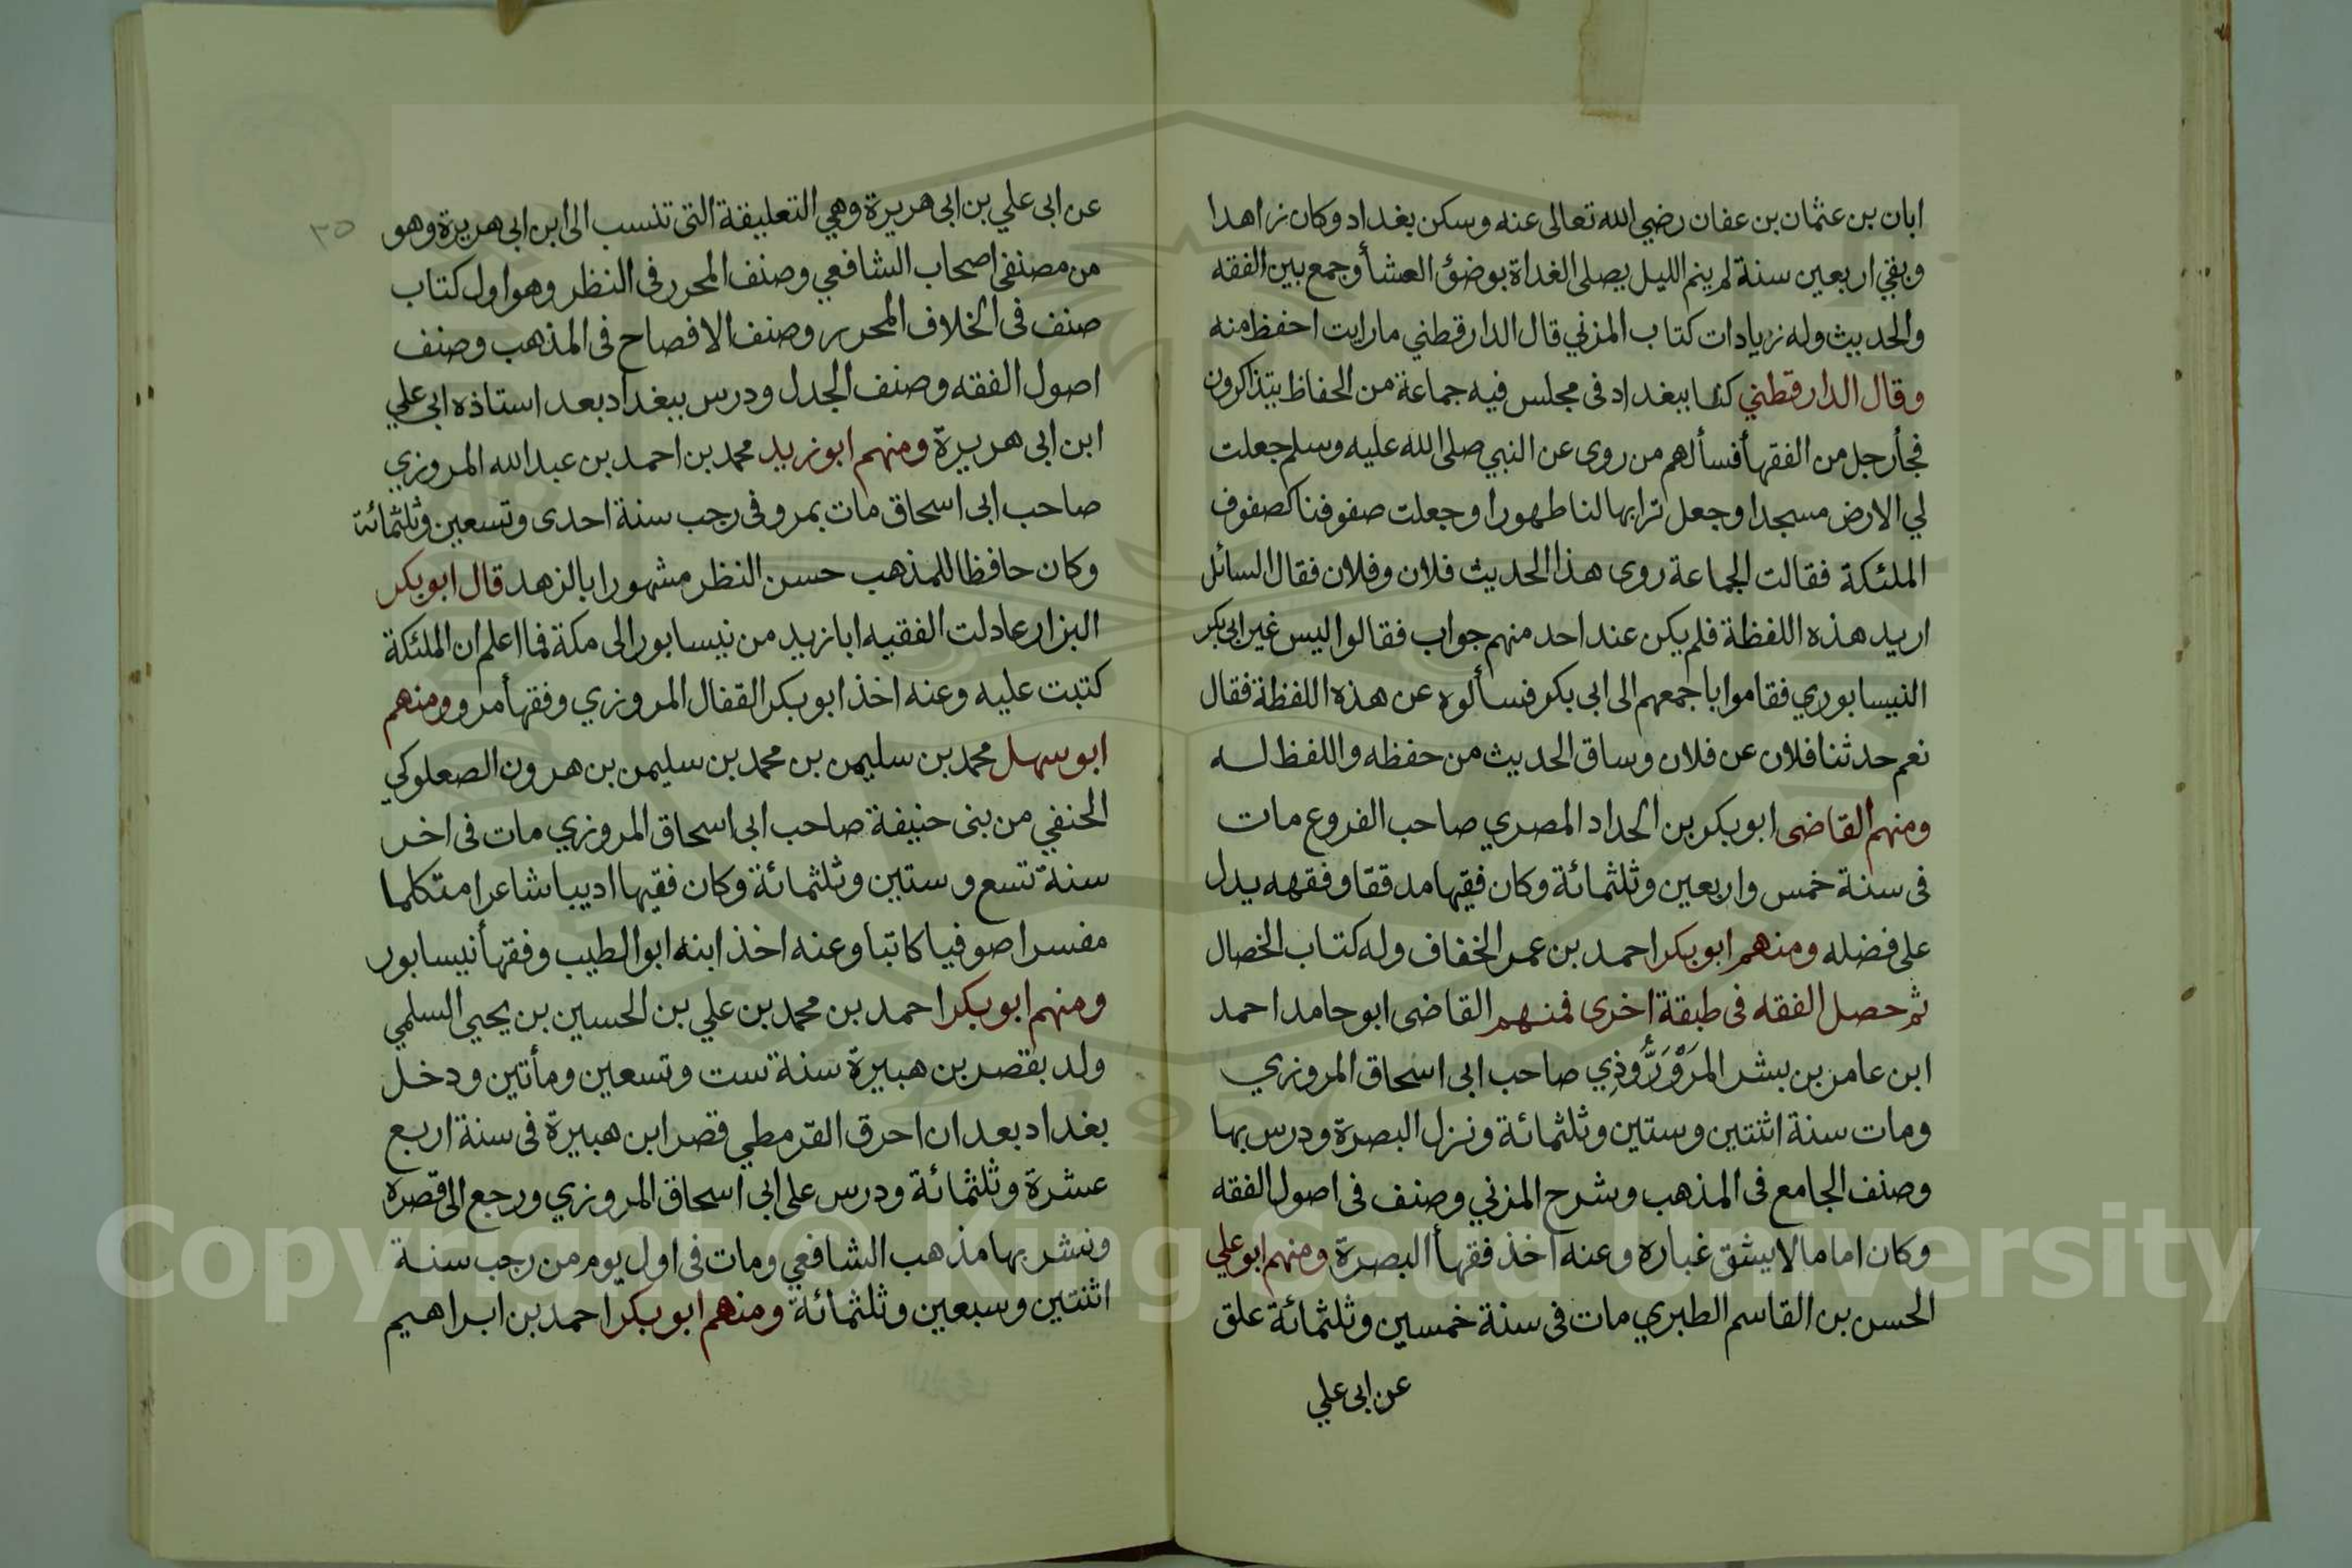 ابان بن عثمان بن عفان رضي الله تعالى عنه وسكن بغداد وكان زاهدا
وبقي اربعين سنة لم ينم الليل يصلى الغداة بوضؤ العشأ وجمع بين الفقه
والحديث وله زيادات كتاب المزني قال الدارقطني ما رايت احفظ منه
وقال الدارقطني كنا ببغداد فى مجلس فيه جماعة من الحفاظ يتذاكرون
فجأ رجل من الفقهأ فسألهم من روى عن النبي صلى الله عليه وسلم جعلت
لي الارض مسجدا وجعل ترابها لنا طهورا وجعلت صفوفنا كصفوف
الملئكة فقالت الجماعة روى هذا الحديث فلان وفلان فقال السائل
اريد هذه اللفظة فلم يكن عند احد منهم جواب فقالوا ليس غير ابى بكر
النيسابوري فقاموا باجمعهم الى ابى بكر فسألوه عن هذه اللفظة فقال
نعم حدثنا فلان عن فلان وساق الحديث من حفظه واللفظ له
ومنهم القاضى ابو بكر بن الحداد المصري صاحب الفروع مات
فى سنة خمس واربعين وثلثمائة وكان فقيها مدققا وفقهه يدل
على فضله ومنهم ابو بكر احمد بن عمر الخفاف وله كتاب الخصال
ثم حصل الفقه فى طبقة اخرى فمنهم القاضى ابو حامد احمد
ابن عامر بن بشر المَرْوَرُّوذِي صاحب ابى اسحاق المروزي
ومات سنة اثنتين وستين وثلثمائة ونزل البصرة ودرس بها
وصنف الجامع فى المذهب وشرح المزني وصنف فى اصول الفقه
وكان اماما لا يشق غباره وعنه اخذ فقهأ البصرة ومنهم ابو علي
الحسن بن القاسم الطبري مات فى سنة خمسين وثلثمائة علق
عن ابى علي
٣٥
عن ابى علي بن ابى هريرة وهي التعليقة التى تنسب الى ابن ابى هريرة وهو
من مصنفى اصحاب الشافعي وصنف المحرر فى النظر وهو اول كتاب
صنف فى الخلاف المحرر وصنف الافصاح فى المذهب وصنف
اصول الفقه وصنف الجدل ودرس ببغداد بعد استاذه ابى علي
ابن ابى هريرة ومنهم ابو زيد محمد بن احمد بن عبد الله المروزي
صاحب ابى اسحاق مات بمرو فى رجب سنة احدى وتسعين وثلثمائة
وكان حافظا للمذهب حسن النظر مشهورا بالزهد قال ابو بكر
البزار عادلت الفقيه ابا زيد من نيسابور الى مكة فما اعلم ان الملئكة
كتبت عليه وعنه اخذ ابو بكر القفال المروزي وفقهأ مرو ومنهم
ابو سهل محمد بن سليمن بن محمد بن سليمن بن هرون الصعلوكي
الحنفي من بنى حنيفة صاحب ابى اسحاق المروزي مات فى اخر
سنة تسع وستين وثلثمائة وكان فقيها اديبا شاعرا متكلما
مفسرا صوفيا كاتبا وعنه اخذ ابنه ابو الطيب وفقهأ نيسابور
ومنهم ابو بكر احمد بن محمد بن علي بن الحسين بن يحيى السلمي
ولد بقصر بن هبيرة سنة ست وتسعين ومأتين ودخل
بغداد بعد ان احرق القرمطي قصر ابن هبيرة فى سنة اربع
عشرة وثلثمائة ودرس على ابى اسحاق المروزي ورجع الى قصره
ونشر بها مذهب الشافعي ومات فى اول يوم من رجب سنة
اثنتين وسبعين وثلثمائة ومنهم ابو بكر احمد بن ابراهيم
Copyright © King Saud University